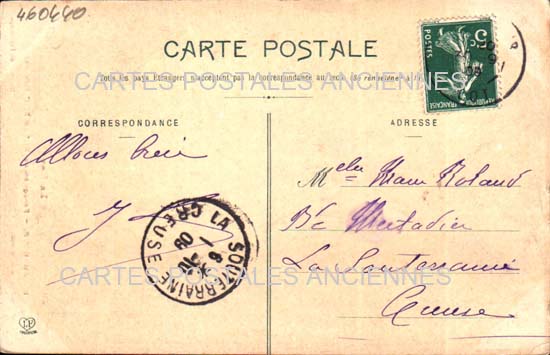 460440
CARTE POSTALE
Tous les pays Etrangers n'acceptent pas la correspondance au recto (Se renseigner à la
CARTES POSTALES ANCIENNES
CORRESPONDANCE
ADRESSE
5c
POSTES
FRANÇAISE
Allons bien
J
Melle
Roland
Bd Mestadier
La Souterraine
Creuse
LA SOUTERRAINE
CREUSE
CARTES POSTALES ANCIENNES